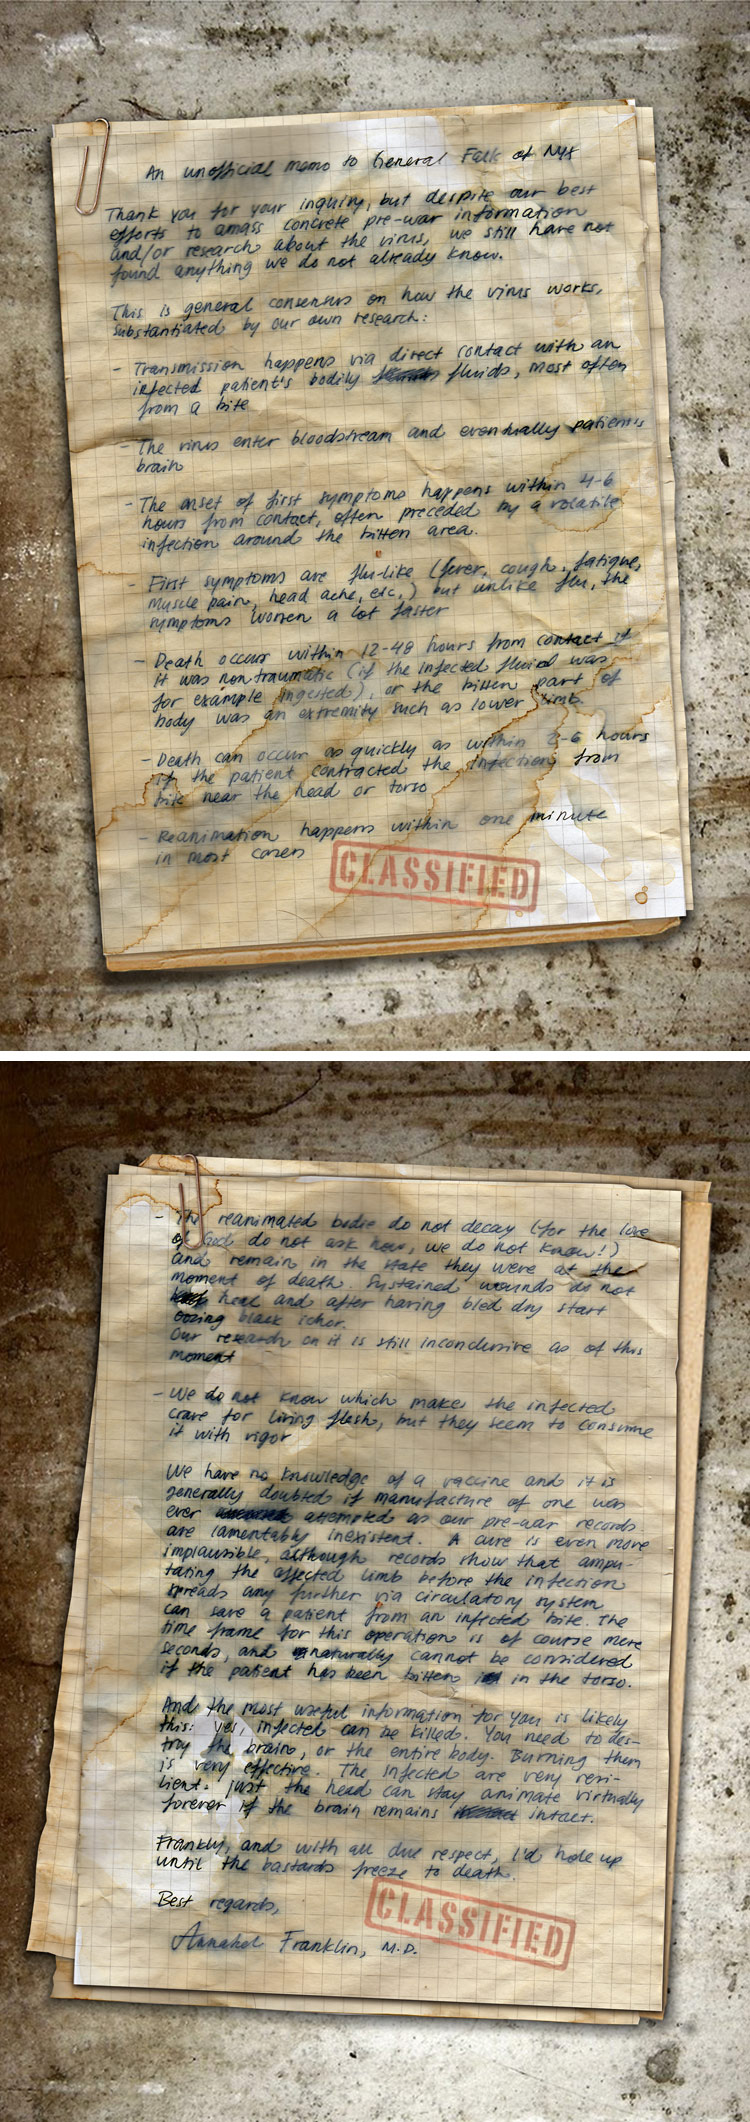 An unofficial memo to General Falk of NYX
Thank you for your inquiry, but despite our best
efforts to amass concrete pre-war information
and/or research about the virus, we still have not
found anything we do not already know.
This is general consensus on how the virus works,
substantiated by our own research:
- Transmission happens via direct contact with an
infected patient's bodily fluids, most often
from a bite
- The virus enter bloodstream and eventually patient's
brain
- The onset of first symptoms happens within 4-6
hours from contact, often preceded by a volatile
infection around the bitten area.
- First symptoms are flu-like (fever, cough, fatigue,
muscle pain, head ache, etc.) but unlike flu, the
symptoms worsen a lot faster
- Death occurs within 12-48 hours from contact if
it was nontraumatic (if the infected fluid was
for example ingested), or the bitten part of
body was an extremity such as lower limb
- Death can occur as quickly as within 2-6 hours
if the patient contracted the infection from
bite near the head or torso
- Reanimation happens within one minute
in most cases
CLASSIFIED
- The reanimated bodie do not decay (for the love
of God do not ask how, we do not know!)
and remain in the state they were at the
moment of death. Sustained wounds do not
heal and after having bled dry start
oozing black ichor.
Our research on it is still inconclusive as of this
moment
- We do not know which makes the infected
crave for living flesh, but they seem to consume
it with vigor
We have no knowledge of a vaccine and it is
generally doubted if manufacture of one was
ever attempted as our pre-war records
are lamentably inexistent. A cure is even more
implausible, although records show that ampu-
tating the affected limb before the infection
spreads any further via circulatory system
can save a patient from an infected bite. The
time frame for this operation is of course mere
seconds, and naturally cannot be considered
if the patient has been bitten in the torso.
And the most useful information for you is likely
this: yes, infected can be killed. You need to des-
troy the brain, or the entire body. Burning them
is very effective. The infected are very resi-
lient: just the head can stay animate virtually
forever if the brain remains intact.
Frankly, and with all due respect, I'd hole up
until the bastards freeze to death.
Best regards,
CLASSIFIED
Annabel Franklin, M.D.